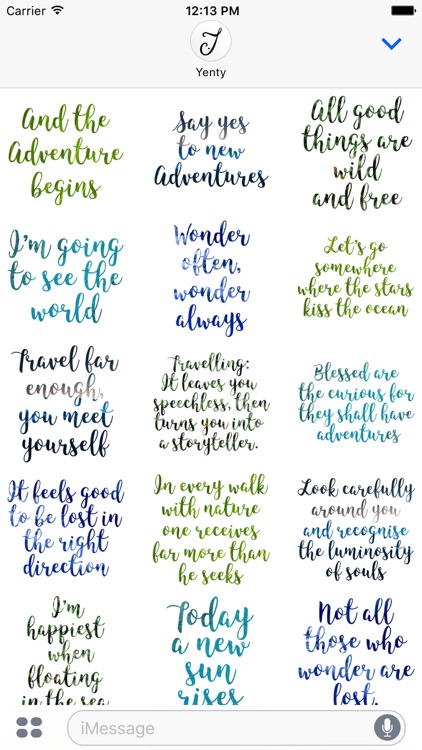 Carrier 12:13 PM
J
Yenty
And the
Adventure
begins
Say yes
to new
Adventures
All good
things are
wild
and free
I'm going
to see the
world
Wonder
often,
wonder
always
Let's go
somewhere
where the stars
kiss the ocean
Travel far
enough,
you meet
yourself
Travelling:
It leaves you
speechless, then
turns you into
a storyteller.
Blessed are
the curious for
they shall have
adventures
It feels good
to be lost in
the right
direction
In every walk
with nature
one receives
far more than
he seeks
Look carefully
around you
and recognise
the luminosity
of souls
I'm
happiest
when
floating
in the sea
Today
a new
sun
rises
Not all
those who
wonder are
lost.
iMessage